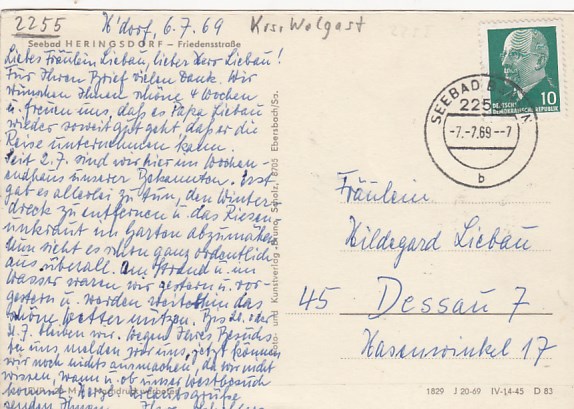 2255
H'dorf, 6.7.69
Krs. Wolgast
Seebad HERINGSDORF – Friedensstraße
Liebes Fräulein Liebau, lieber Herr Liebau!
Für Ihren Brief vielen Dank. Wir
wünschen Ihnen schöne 4 Wochen
u. freuen uns, daß es Papa Liebau
wieder soweit gut geht, daß er die
Reise unternehmen kann.
Seit 2.7. sind wir hier im Wochen-
endhaus unserer Bekannten. Erst
gab es allerlei zu tun, den Winter-
dreck zu entfernen u. das Riesen-
unkraut im Garten abzumähen.
Nun sieht es schon ganz ordentlich
aus überall. Am Strand u. im
Wasser waren wir gestern u. vor-
gestern u. werden weiterhin das
schöne Wetter nützen. Bis 20. oder
21.7. bleiben wir. Wegen Ihres Besuchs
bei uns melden wir uns, jetzt können
wir noch nichts ausmachen, da wir nicht
wissen, wann u. ob unser Westbesuch
kommt. Herzl. Urlaubsgrüße
senden Ihnen
Foto- und Kunstverlag Bruno Scholz, 8705 Ebersbach/Sa.
SEEBAD BANSIN
2253
-7.-7.69--7
b
DEUTSCHE
DEMOKRATISCHE REPUBLIK
10
Fräulein
Hildegard Liebau
45 Dessau 7
Hasenwinkel 17
1829 J 20-69 IV-14-45 D 83